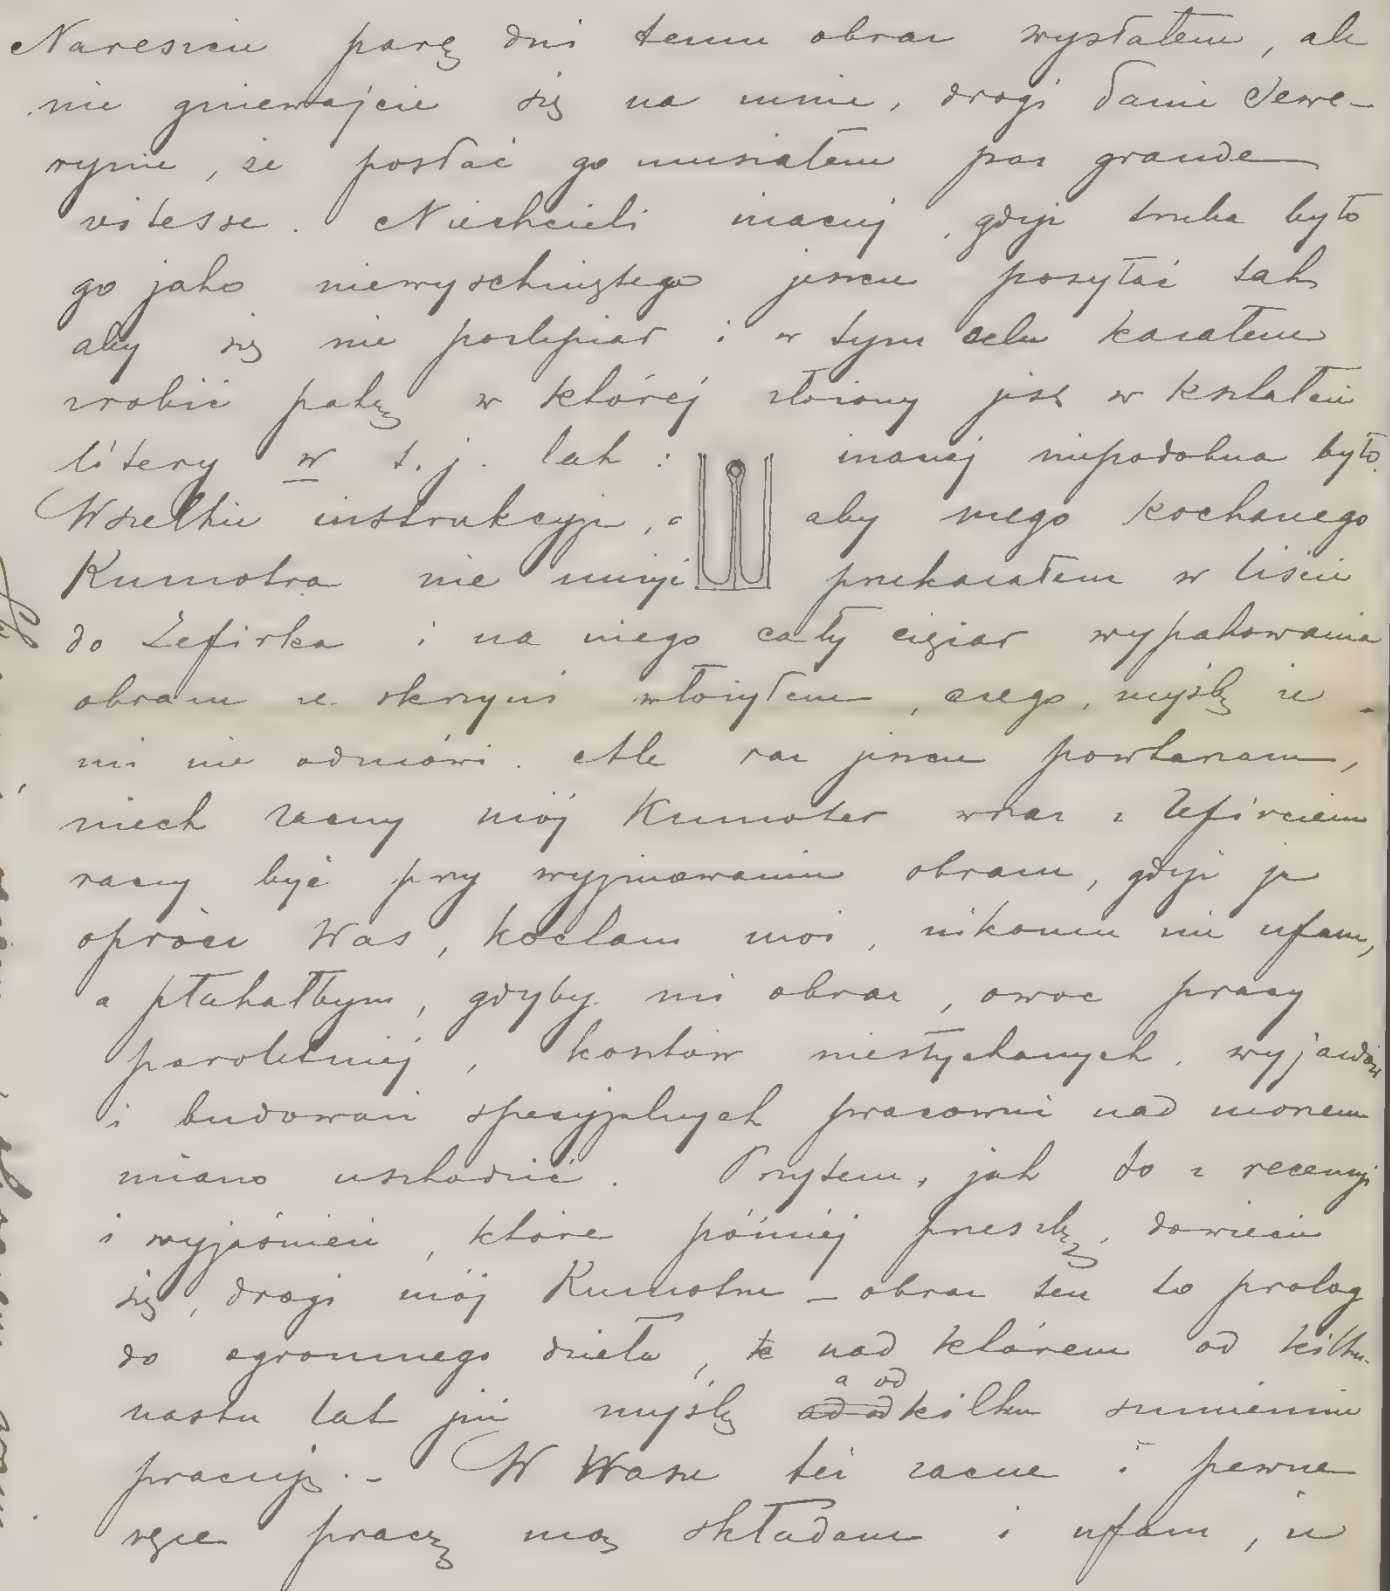 Nareszcie parę dni temu obraz wysłałem, ale
nie gniewajcie się na mnie, drogi Panie Sewe-
rynie, że posłać go musiałem par grande
vitesse. Niechcieli inaczej, gdyż trzeba było
go jako niewyschniętego jeszcze posyłać tak
aby się nie poslepiał i w tym celu kazałem
zrobić pakę w której złożony jest w kształcie
litery w t. j. tak : inaczej niepodobna było.
Wszelkie instrukcyje, a aby mego kochanego
Kumotra nie przekazałem w liście
do Zefirka i na niego cały ciężar wypakowania
obrazu ze skrzyni włożyłem, czego, myślę że
mi nie odmówi. Ale raz jeszcze powtarzam,
niech zacny mój Kumoter wraz z Zefirciem
raczy być przy wyjmowaniu obrazu, gdyż ja
oprócz Was, kochani moi, nikomu nie ufam,
a płakałbym, gdyby mi obraz, owoc pracy
paroletniej, kosztów niesłychanych, wyjazdów
i budowań specyjalnych pracowni nad morzem
miano uszkodzić. Przytem, jak to z recenzji
i wyjaśnień, które później prześlę, dowiecie
się, drogi mój Kumotrze – obraz ten to prolog
do ogromnego dzieła, nad którem od kilku-
nastu lat już myślę a od kilku sumiennie
pracuję. – W Wasze też zacne i pewne
ręce pracę mą składam i ufam, że